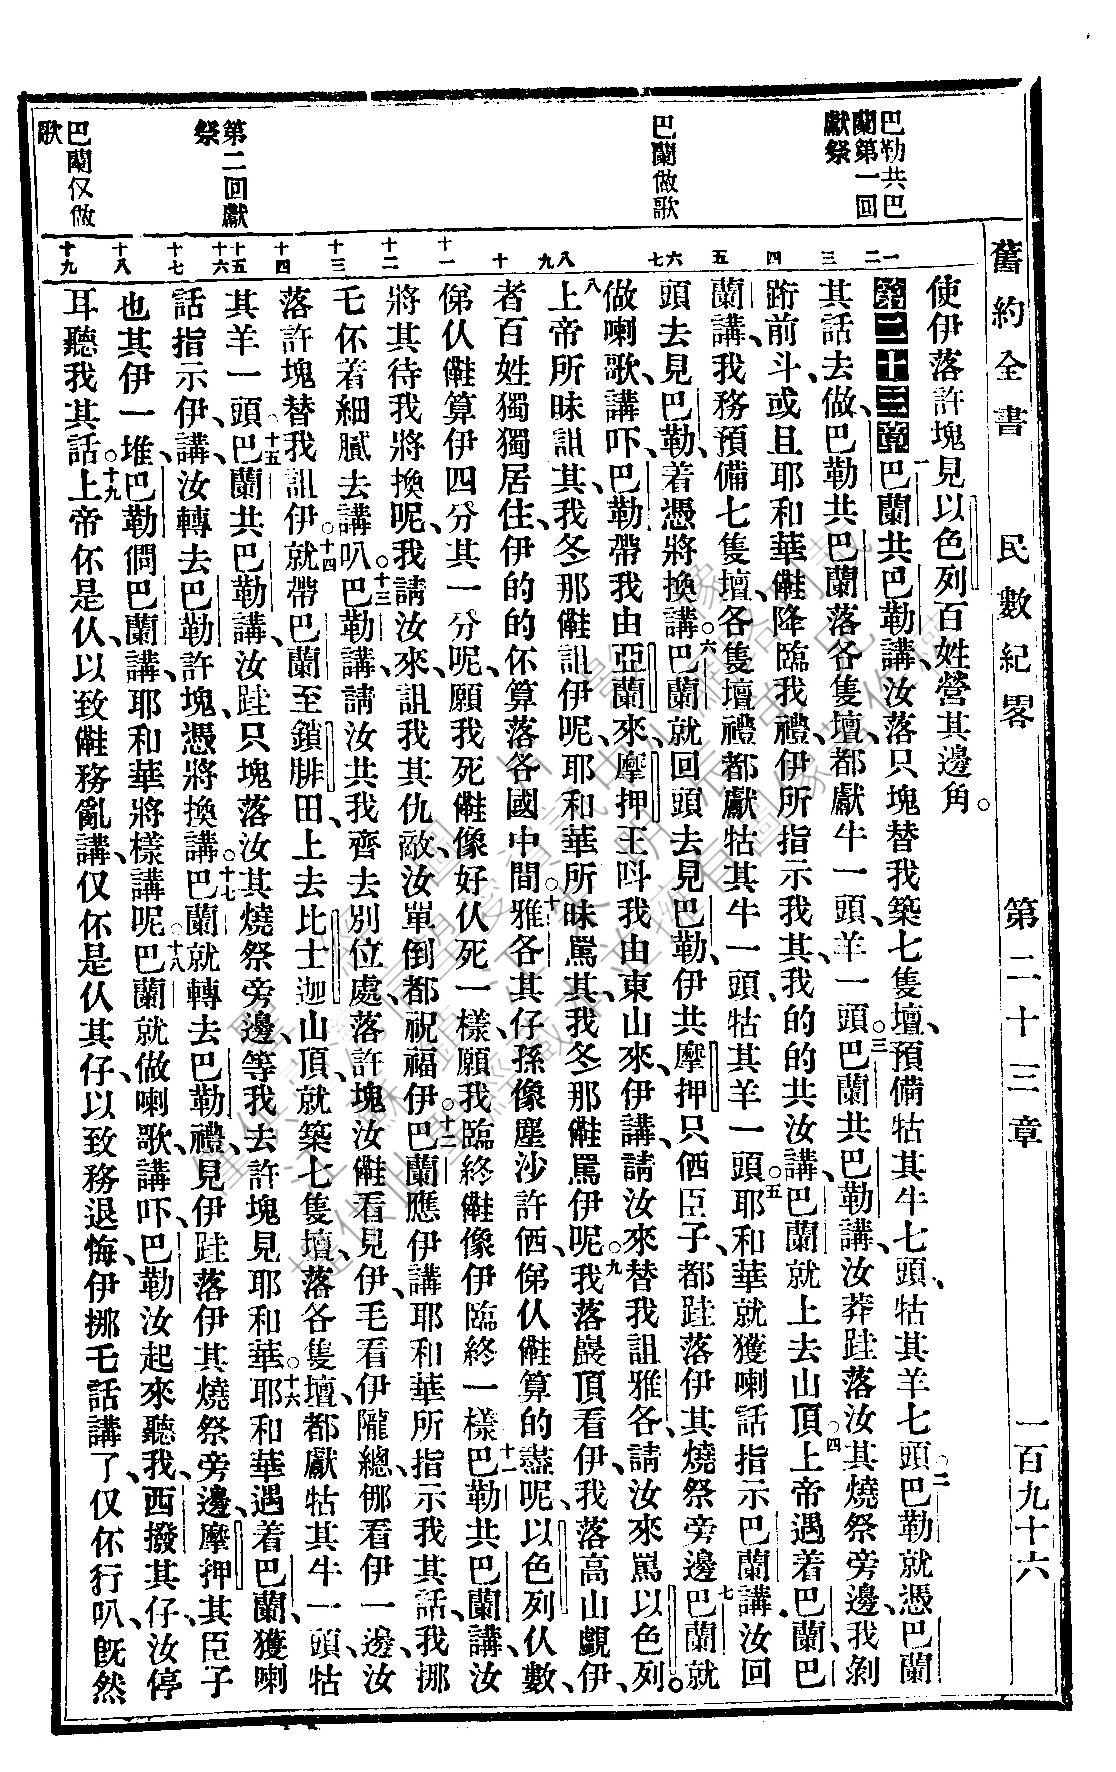 舊約全書　民數紀畧　第二十三章　一百九十六
巴勒共巴
蘭第一回
獻祭
巴蘭做歌
第二回獻
祭
巴蘭仅做
歌
一二　三　四　五　六七　八九　十　十一　十二　十三　十四　十五十六　十七　十八　十九
使伊落許塊見以色列百姓營其邊角。
第二十三章一巴蘭共巴勒講、汝落只塊替我築七隻壇、預備牯其牛七頭、牯其羊七頭。二巴勒就憑巴蘭
其話去做、巴勒共巴蘭落各隻壇、都獻牛一頭、羊一頭。三巴蘭共巴勒講、汝莽跬落汝其燒祭旁邊、我剝
跻前斗、或且耶和華𣍐降臨我禮、伊所指示我其、我的的共汝講、巴蘭就上去山頂。四上帝遇着巴蘭、巴
蘭講、我務預備七隻壇、各隻壇禮都獻牯其牛一頭、牯其羊一頭。五耶和華就獲喇話指示巴蘭講、汝回
頭去見巴勒、着憑將換講。六巴蘭就回頭去見巴勒、伊共摩押只儕臣子、都跬落伊其燒祭旁邊。七巴蘭就
做喇歌、講吓、巴勒帶我由亞蘭來、摩押王呌我由東山來、伊講、請汝來替我詛雅各、請汝來罵以色列。
八上帝所昧詛其、我冬那𣍐詛伊呢、耶和華所昧罵其、我冬那𣍐罵伊呢。九我落巖頂看伊、我落高山覷伊、
者百姓獨獨居住、伊的的伓算落各國中間。十雅各其仔孫像塵沙許儕、俤仈𣍐算的盡呢、以色列仈數、
俤仈𣍐算伊四分其一分呢、願我死𣍐像好仈死一樣、願我臨終𣍐像伊臨終一樣。十一巴勒共巴蘭講、汝
將其待我將換呢、我請汝來詛我其仇敵、汝單倒都祝福伊。十二巴蘭應伊講、耶和華所指示我其話、我挪
乇伓着細膩去講叭。十三巴勒講、請汝共我齊去別位處、落許塊汝𣍐看見伊、乇看伊隴總、㑚看伊一邊、汝
落許塊替我詛伊。十四就帶巴蘭至鎖腓田、上去比士迦山頂、就築七隻壇、落各隻壇、都獻牯其牛一頭、牯
其羊一頭。十五巴蘭共巴勒講、汝跬只塊落汝其燒祭旁邊、等我去許塊見耶和華。十六耶和華遇着巴蘭、獲喇
話指示伊、講、汝轉去巴勒許塊、憑將換講。十七巴蘭就轉去巴勒禮、見伊跬落伊其燒祭旁邊、摩押其臣子
也其伊一堆、巴勒㑩巴蘭講、耶和華將樣講呢。十八巴蘭就做喇歌、講吓、巴勒汝起來聽我、西撥其仔、汝停
耳聽我其話。十九上帝伓是仈、以致𣍐務亂講、仅伓是仈其仔、以致務退悔、伊挪乇話講了、仅伓行叭、旣然